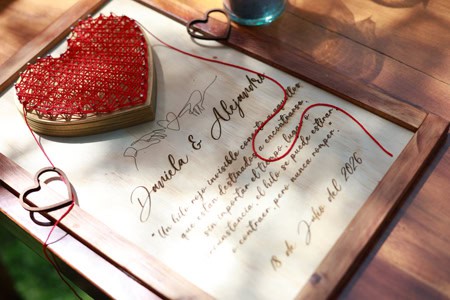 Daniela & Alejandro
"Un hilo rojo invisible conecta aquellos
que están destinados a encontrarse,
sin importar el tiempo, lugar o
circunstancia, el hilo se puede estirar
o contraer, pero nunca romper.
18 de Julio del 2026